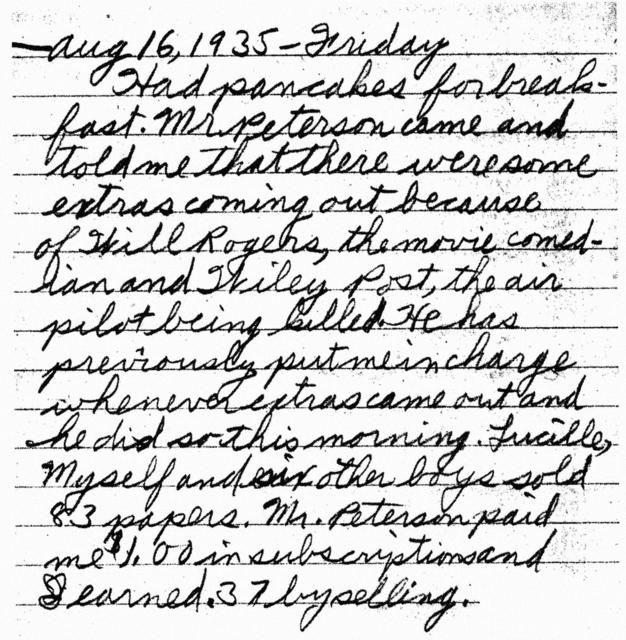 — Aug 16, 1935 – Friday
Had pancakes for break-
fast. Mr. Peterson came and
told me that there were some
extras coming out because
of Will Rogers, the movie comed-
ian and Wiley Post, the air
pilot being killed. He has
previously put me in charge
whenever extras came out and
he did so this morning. Lucille,
Myself and six other boys sold
83 papers. Mr. Peterson paid
me $1.00 in subscriptions and
I earned .37 by selling.